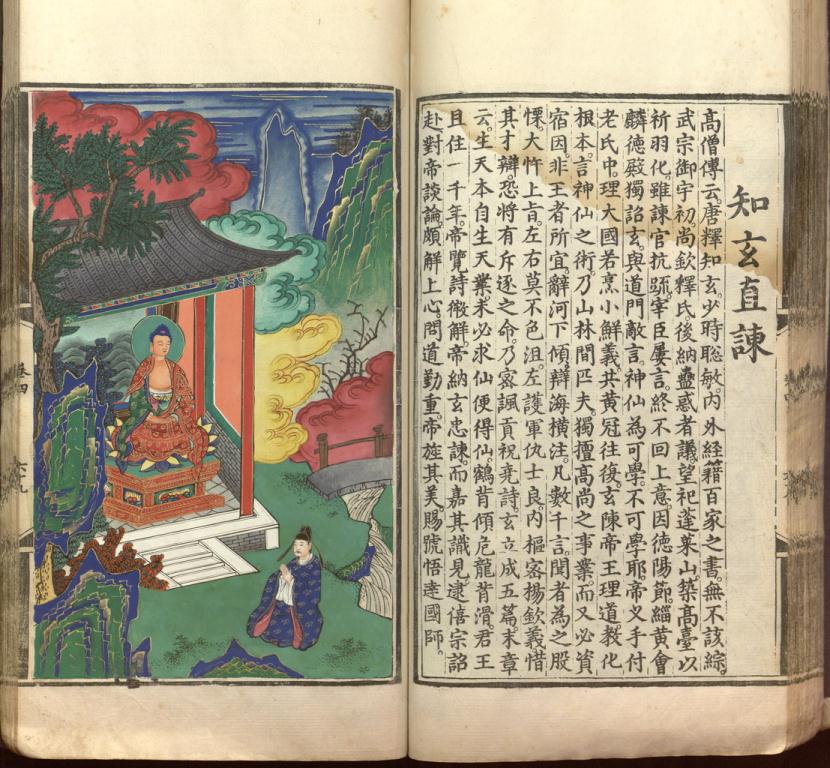 知玄直諫
高僧傳云。唐釋知玄。少時聡敏。內外經籍百家之書。無不該綜。
武宗御宇。初尚欽釋氏。後納蠱惑者議。望祀蓬萊山。築高臺以
祈羽化。雖諫官抗䟽。宰臣屢言。終不回上意。因德陽節。緇黃會
麟德殿。獨詔玄。與道門敵言。神仙為可學。不可學耶。帝叉手付
老氏中。理大國若烹小鮮義。共黃冠往復。玄陳帝王理道。教化
根本。言神仙之術。乃山林間匹夫。獨擅高尚之事業。而又必資
宿因。非王者所宜。辭河下傾。辯海橫注。凡數千言。聞者為之股
慄。大忤上旨。左右莫不色沮。左護軍仇士良。內樞密楊欽義。惜
其才辯。恐將有斥逐之命。乃密諷貢祝堯詩。玄立成五篇。末章
云。生天本自生天業。未必求仙便得仙。鶴背傾危龍背滑。君王
且住一千年。帝覽詩微解。帝納玄忠諫。而嘉其識見。逮僖宗詔
赴對。帝談論。頗解上心。問道勤重。帝旌其美。賜號悟達國師。
卷四
六十九